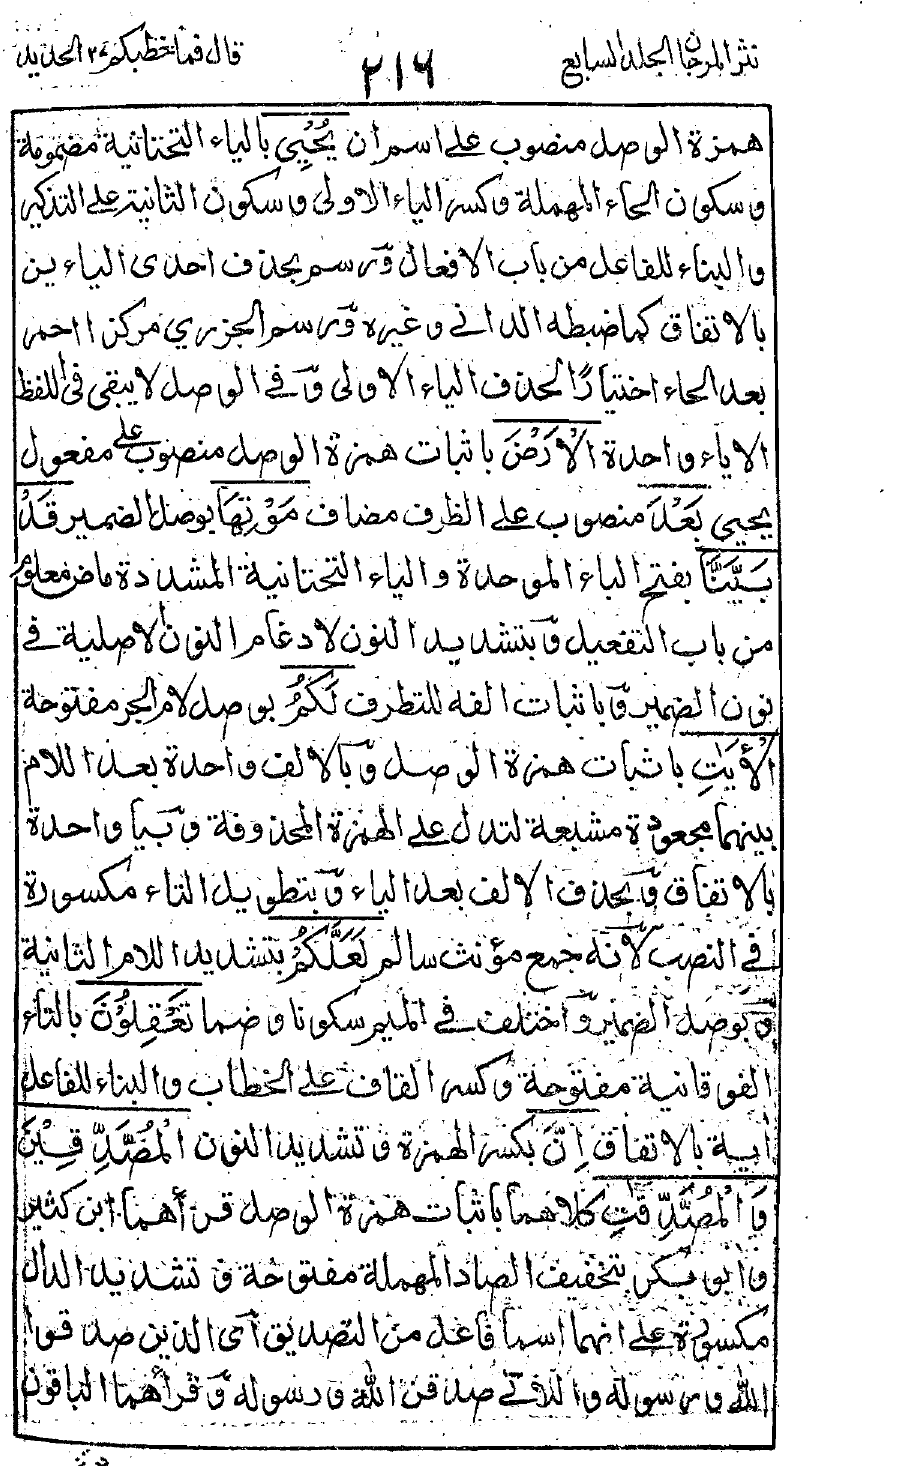 نثر المرجان المجلد السابع
٢١٦
قال فما خطبكم ٢٧ الحديد
همزة الوصل منصوب على اسم ان يُحْيِي بالياء التحتانية مضمومة
وسكون الحاء المهملة وكسر الياء الاولى وسكون الثانية على التذكير
والبناء للفاعل من باب الافعال ورسم بحذف احدى الياءين
بالاتفاق كما ضبطه الداني وغيره ورسم الجزري مركزا احمر
بعد الحاء اختيارًا لحذف الياء الاولى وفي الوصل لا يبقى في اللفظ
الا ياء واحدة الْأَرْضَ باثبات همزة الوصل منصوب على مفعول
يحيي بَعْدَ منصوب على الظرف مضاف مَوْتِهَا بوصل الضمير قَدْ
بَيَّنَّا بفتح الباء الموحدة والياء التحتانية المشددة ماض معلوم
من باب التفعيل وبتشديد النون لادغام النون الاصلية في
نون الضمير وباثبات الفه للتطرف لَكُمُ بوصل لام الجر مفتوحة
الْأٰيٰتِ باثبات همزة الوصل وبالالف واحدة بعد اللام
بينهما مجعودة مشبعة لتدل على الهمزة المحذوفة وبيا واحدة
بالاتفاق وبحذف الالف بعد الياء وبتطويل التاء مكسورة
في النصب لانه جمع مؤنث سالم لَعَلَّكُمْ بتشديد اللام الثانية
وبوصل الضمير واختلف في الميم سكونا وضما تَعْقِلُوْنَ بالتاء
الفوقانية مفتوحة وكسر القاف على الخطاب والبناء للفاعل
اية بالاتفاق اِنَّ بكسر الهمزة وتشديد النون الْمُصَّدِّقِيْنَ
وَالْمُصَّدِّقٰتِ كلاهما باثبات همزة الوصل قرأهما ابن كثير
وابو بكر بتخفيف الصاد المهملة مفتوحة وتشديد الدال
مكسورة على انهما اسما فاعل من التصديق اى الذين صدقوا
الله ورسوله واللاتي صدقن الله ورسوله وقرأهما الباقون